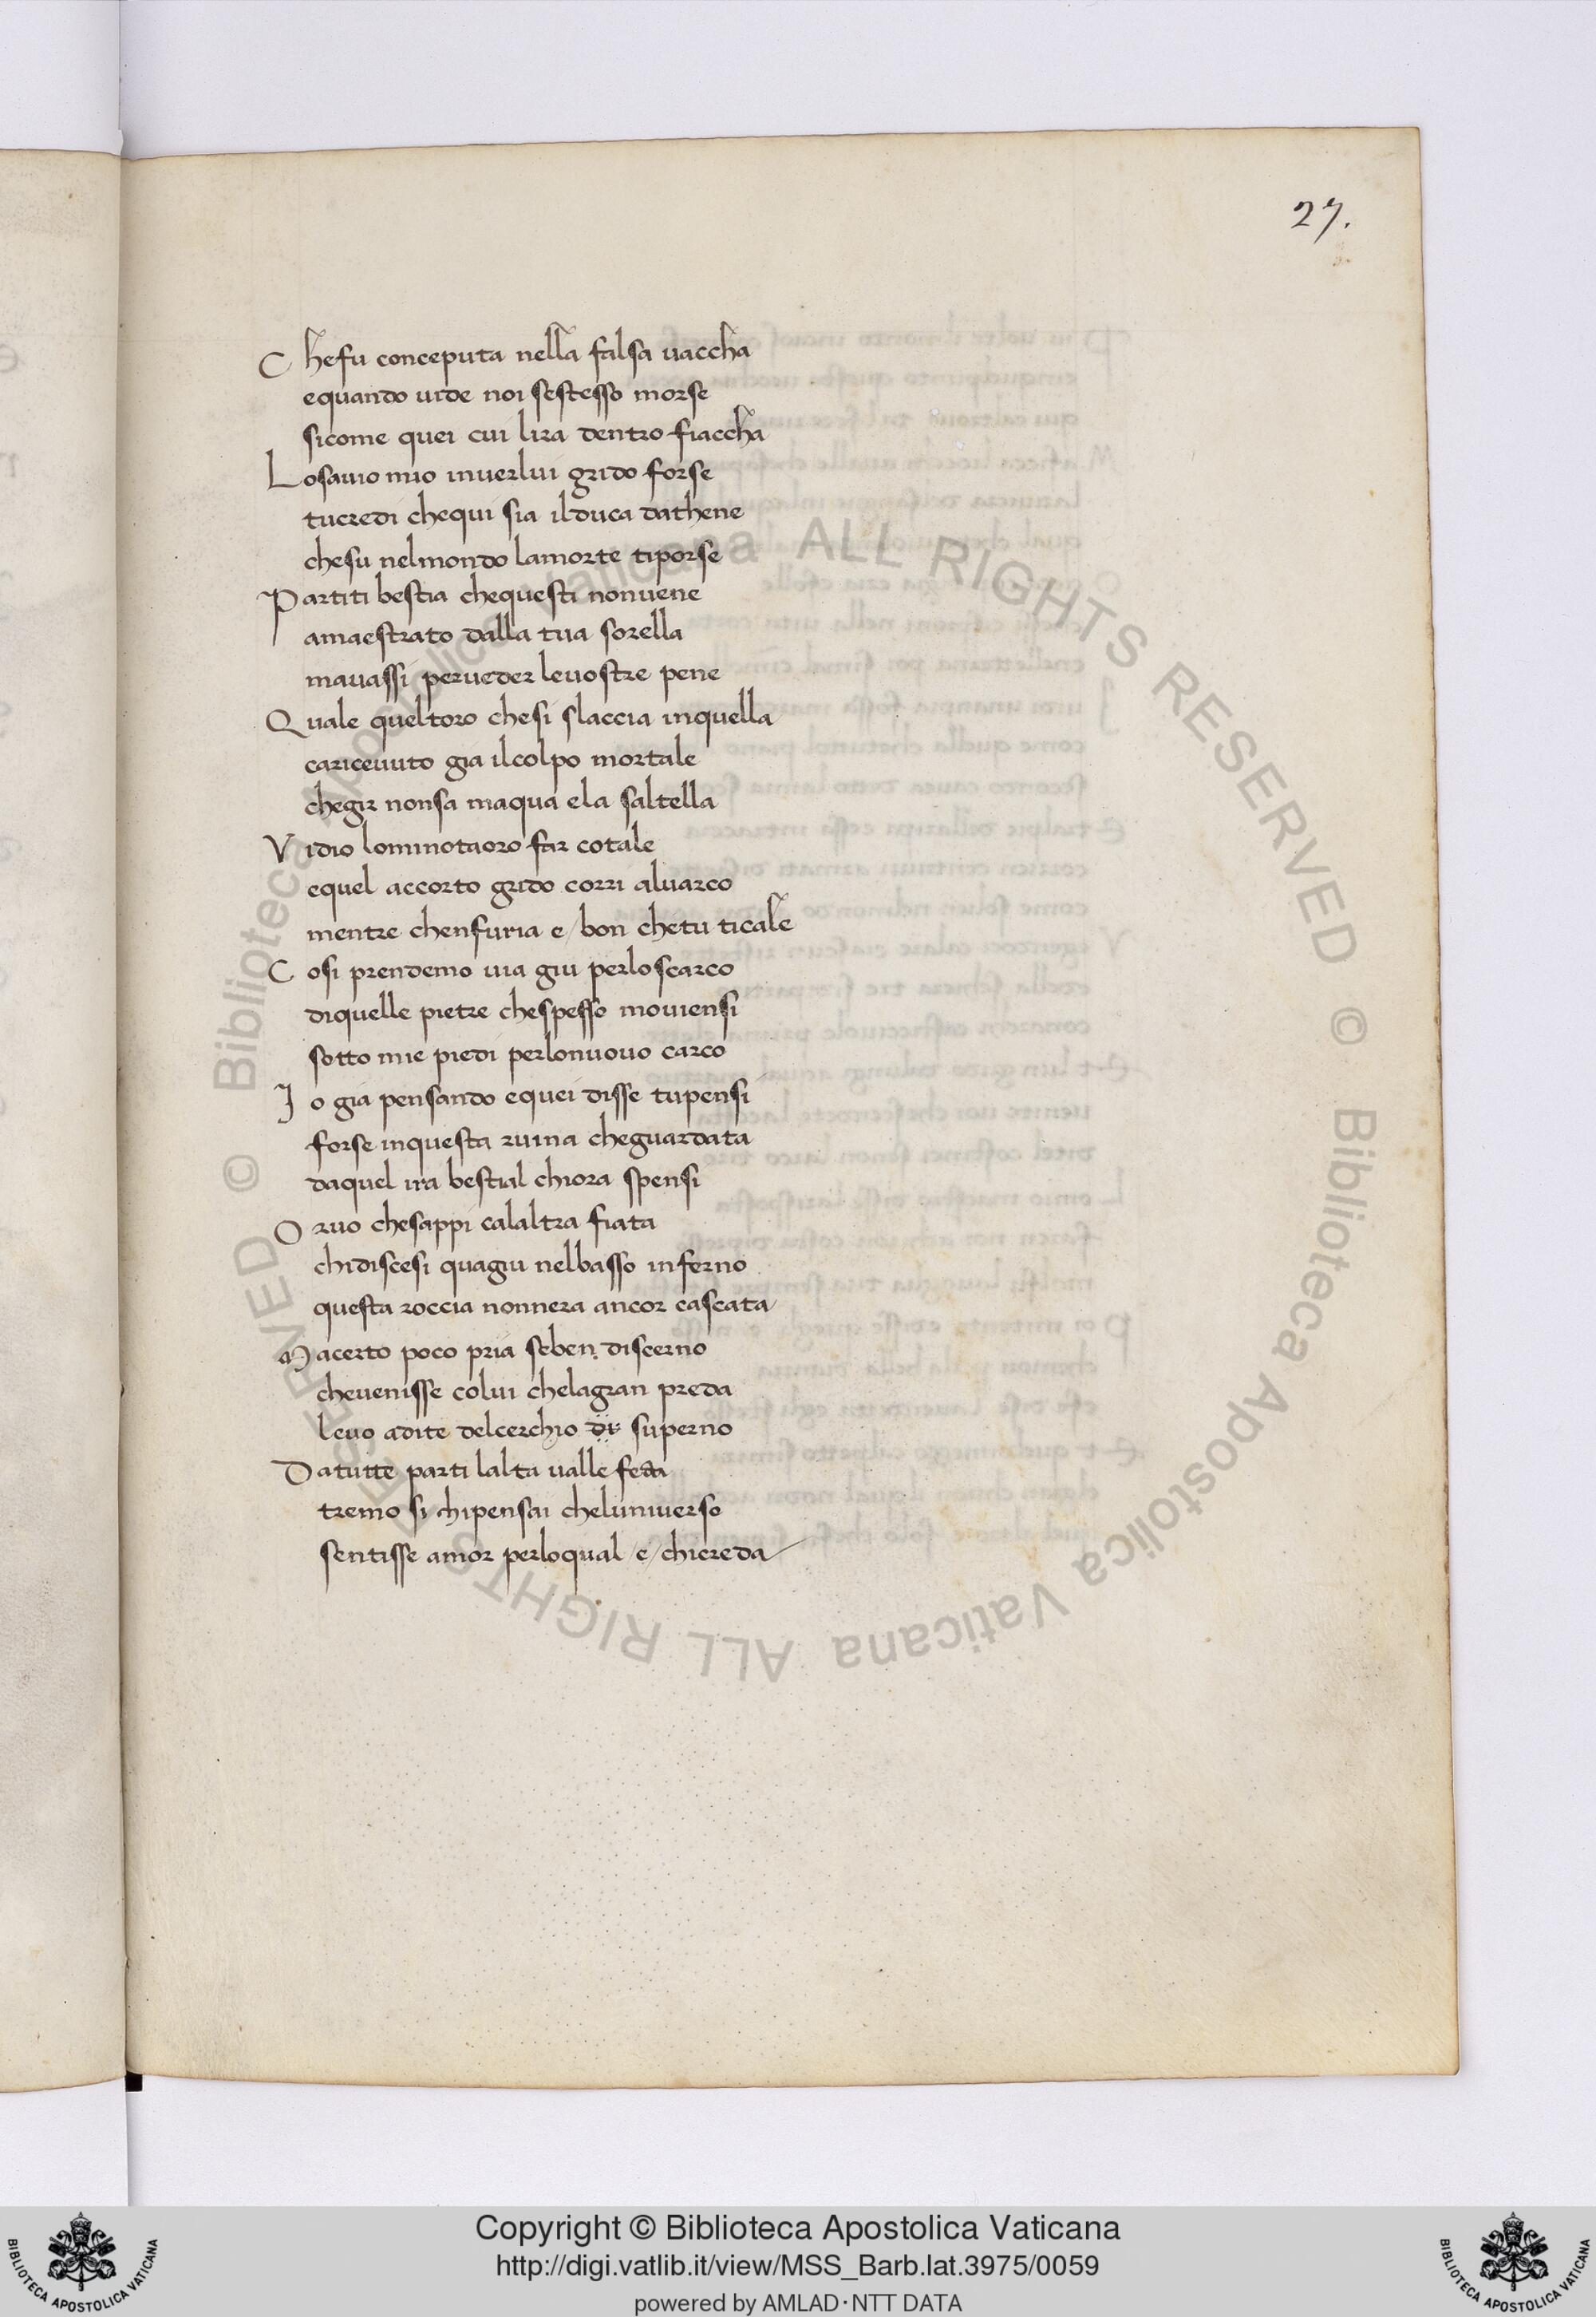 27.
C hefu conceputa nella falsa uaccha
equando uide noi sestesso morse
sicome quei cui lira dentro fiaccha
L osauio mio inuerlui grido forse
tucredi chequi sia ilduca dathene
chesu nelmondo lamorte tiporse
P artiti bestia chequesti nonuene
amaestrato dalla tua sorella
mauassi perueder leuostre pene
Q uale queltoro chesi slaccia inquella
cariceuuto gia ilcolpo mortale
chegir nonsa maqua ela saltella
V idio lominotaoro far cotale
equel accorto grido corri aluarco
mentre chenfuria e/bon chetu ticale
C osi prendemo uia giu perloscarco
diquelle pietre chespesso mouiensi
sotto mie piedi perlonuouo carco
I o gia pensando equei disse tupensi
forse inquesta ruina cheguardata
daquel ira bestial chiora spensi
O ruo chesappi calaltra fiata
chidiscesi quagiu nelbasso inferno
questa roccia nonnera ancor cascata
M acerto poco pria seben discerno
cheuenisse colui chelagran preda
leuo adite delcerchio di superno
D atutte parti lalta ualle feda
tremo si chipensai cheluniuerso
sentisse amor perloqual /e/ chicreda
© Biblioteca Apostolica Vaticana ALL RIGHTS RESERVED © Biblioteca Apostolica Vaticana ALL RIGHTS RESERVED
Copyright © Biblioteca Apostolica Vaticana
http://digi.vatlib.it/view/MSS_Barb.lat.3975/0059
powered by AMLAD·NTT DATA
BIBLIOTECA APOSTOLICA VATICANA
BIBLIOTECA APOSTOLICA VATICANA